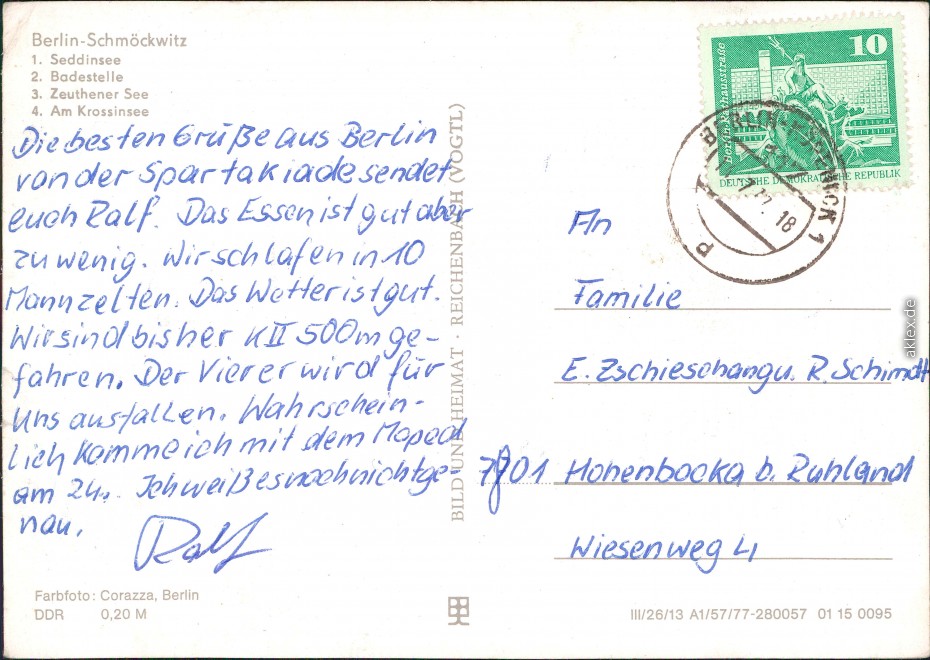 Berlin-Schmöckwitz
1. Seddinsee
2. Badestelle
3. Zeuthener See
4. Am Krossinsee
Die besten Grüße aus Berlin
von der Spartakiade sendet
euch Ralf. Das Essen ist gut aber
zu wenig. Wir schlafen in 10
Mannzelten. Das Wetter ist gut.
Wir sind bisher KII 500m ge-
fahren. Der Vierer wird für
uns ausfallen. Wahrschein-
lich komme ich mit dem Moped
am 24.. Ich weiß es noch nicht ge
nau.
Ralf
Farbfoto: Corazza, Berlin
DDR 0,20 M
BILD UND HEIMAT · REICHENBACH (VOGTL)
10
DEUTSCHE DEMOKRATISCHE REPUBLIK
18
An
Familie
E. Zschieschang u. R. Schimdt
7701 Hohenbocka b. Ruhland
Wiesenweg 4
III/26/13 A1/57/77-280057 01 15 0095
aklex.de